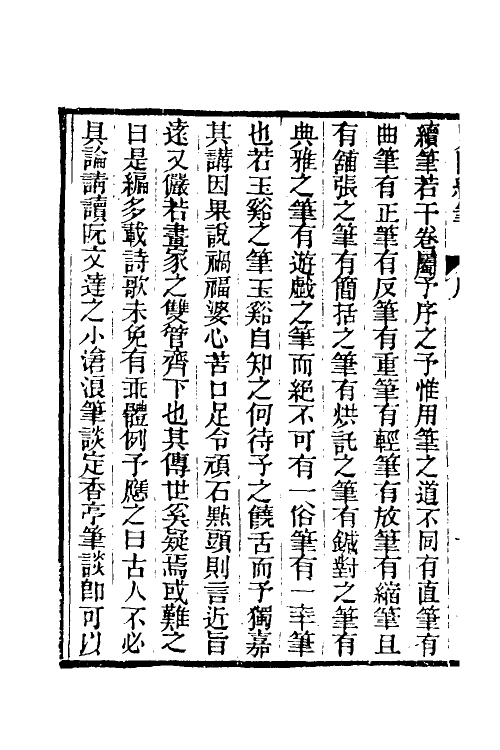 續筆若干卷屬予序之予惟用筆之道不同有直筆有
曲筆有正筆有反筆有重筆有輕筆有放筆有縮筆且
有舖張之筆有簡括之筆有烘託之筆有鍼對之筆有
典雅之筆有遊戲之筆而絕不可有一俗筆有一幸筆
也若玉谿之筆玉谿自知之何待予之饒舌而予獨嘉
其講因果說禍福婆心苦口足令頑石點頭則言近旨
遠又儼若畫家之雙管齊下也其傳世奚疑焉或難之
曰是編多載詩歌未免有乖體例予應之曰古人不必
具論請讀阮文達之小滄浪筆談定香亭筆談卽可以